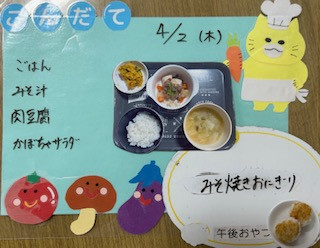 こんだて
4/2 (木)
ごはん
みそ汁
肉豆腐
かぼちゃサラダ
みそ焼きおにぎり
午後おやつ